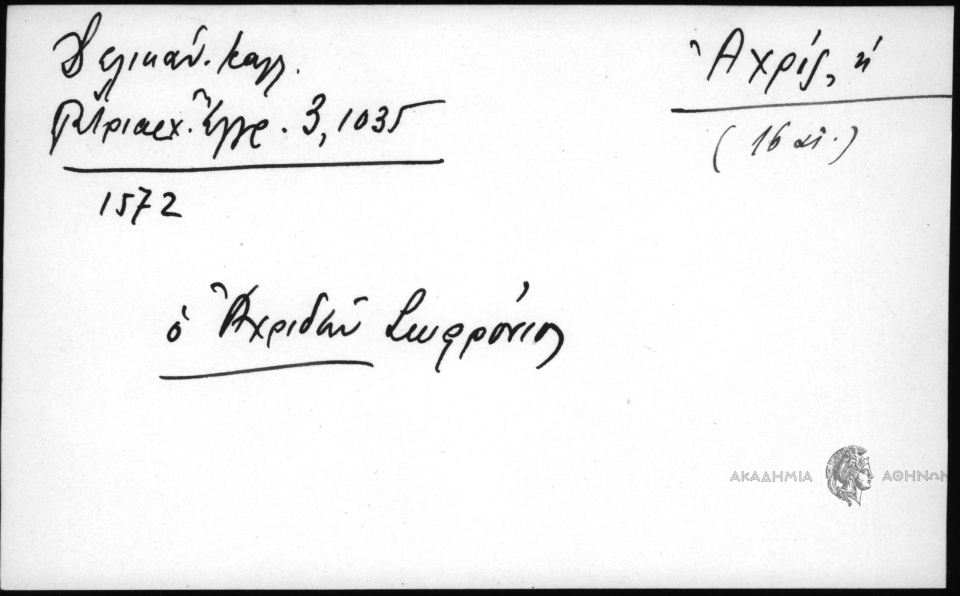 Δελικάν. Καλλ.
Πατριαρχ. Ἔγγρ. 3, 1035
1572
Ἀχρίς, ἡ
(16 αἰ.)
ὁ Ἀχριδῶν Σωφρόνιος
ΑΚΑΔΗΜΙΑ ΑΘΗΝΩΝ